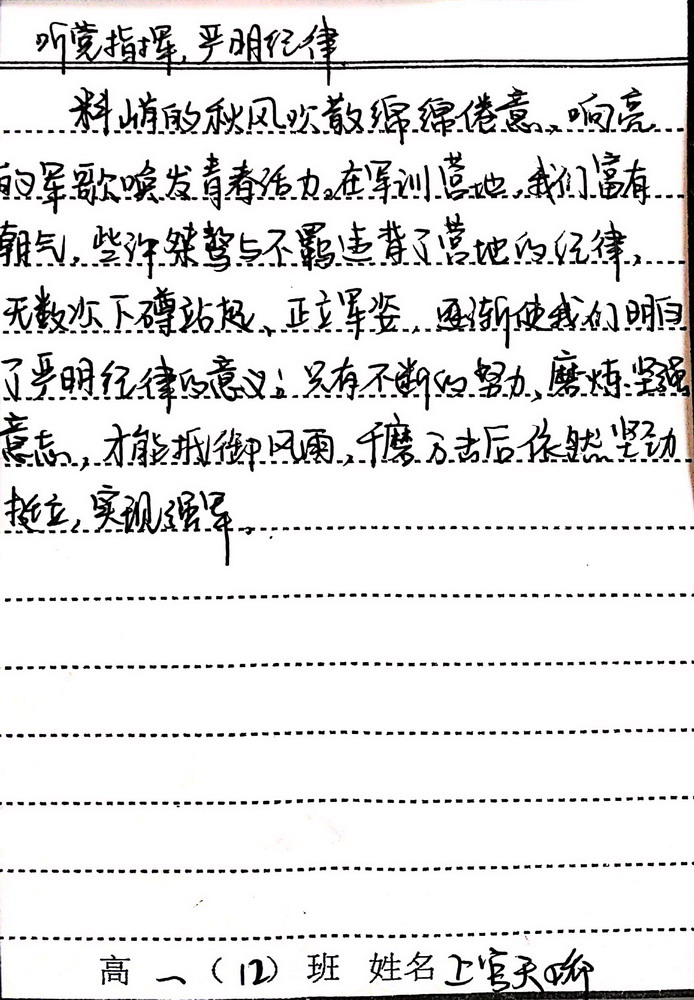 听党指挥,严明纪律
料峭的秋风吹散绵绵倦意,响亮
的军歌唤发青春活力。在军训营地,我们富有
朝气,些许桀骜与不羁违背了营地的纪律,
无数次下蹲站起、正立军姿,逐渐使我们明白
了严明纪律的意义:只有不断的努力,磨炼坚强
意志,才能抵御风雨,千磨万击后依然坚劲
挺立,实现强军。
高一(12)班 姓名上官天